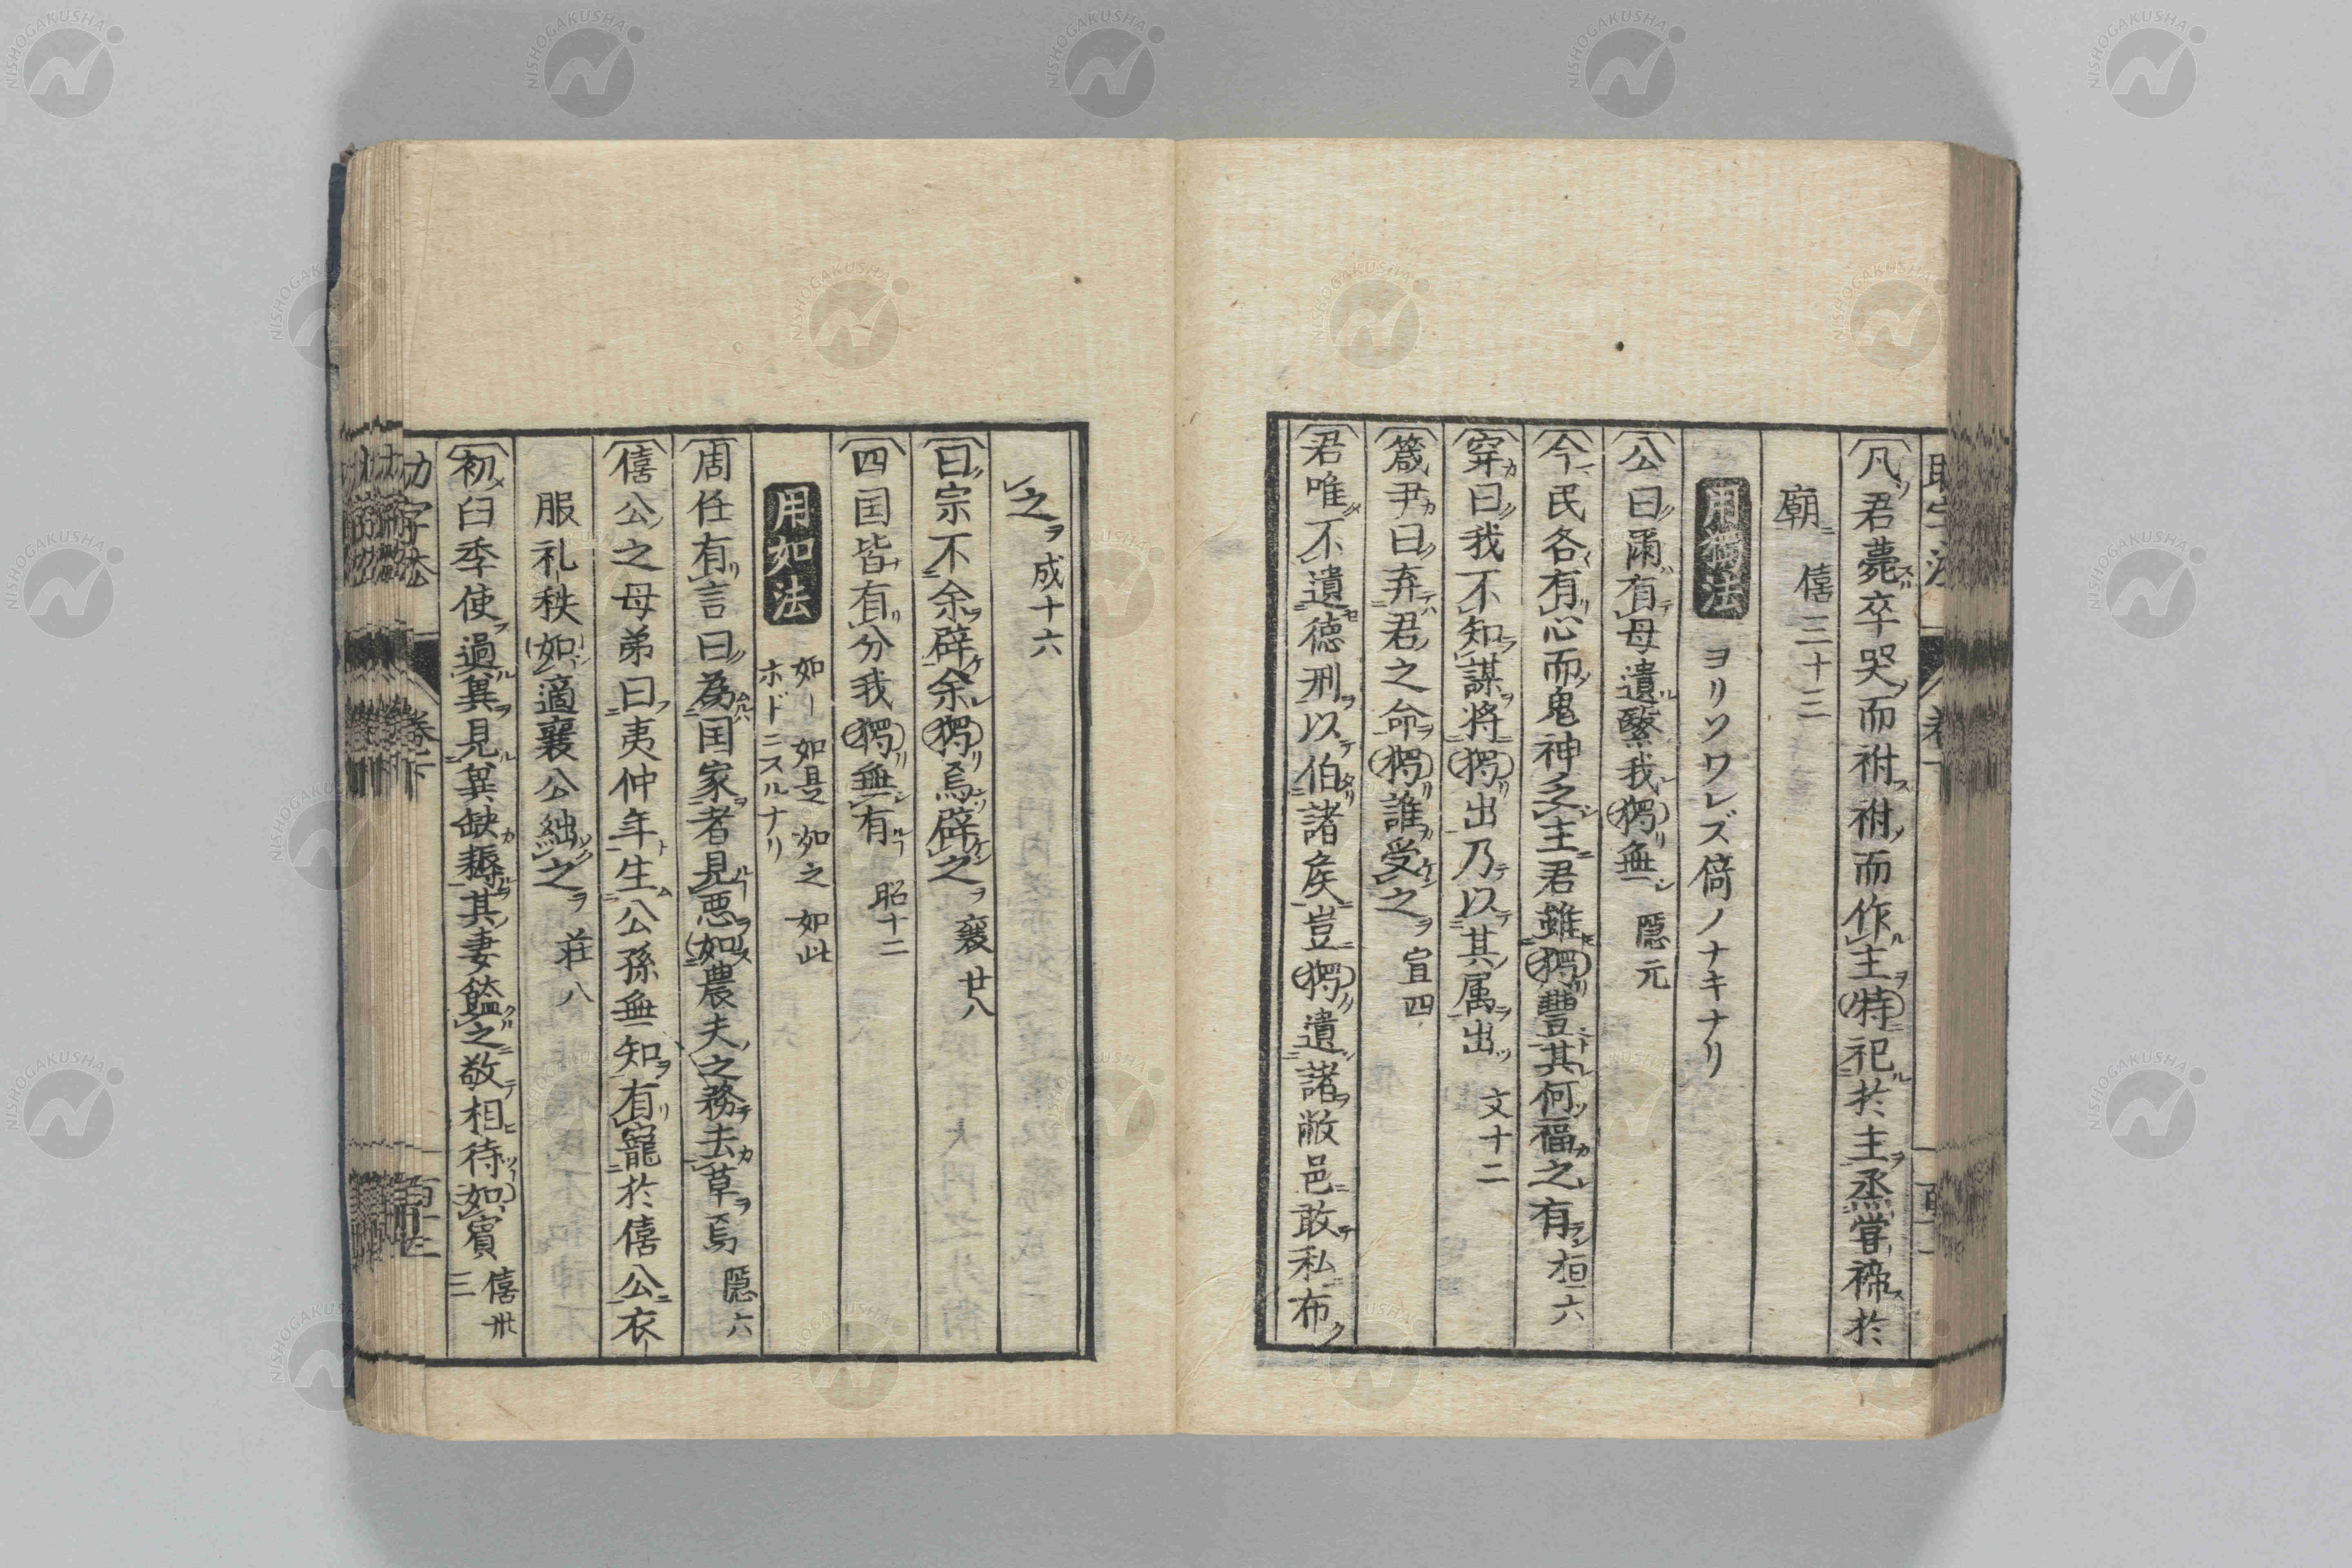 凡君薨卒哭而祔祔而作主特祀於主烝嘗禘於
廟 僖三十三
用獨法 ヨリソワレズ倚ノナキナリ
公曰爾有母遺繄我獨無 隠元
今民各有心而鬼神乏主君雖獨豐其何福之有 桓六
穿曰我不知謀將獨出乃以其属出 文十二
箴尹曰弃君之命獨誰受之 宣四
君唯不遺徳刑以伯諸矦豈獨遺諸敝邑敢私布
之 成十六
曰宗不余辟余獨焉辟之 襄廿八
四国皆有分我獨無有 昭十二
用如法 如― 如是 如之 如此
ホドニスルナリ
周任有言曰為国家者見悪如農夫之務去草焉 隠六
僖公之母弟曰夷仲年生公孫無知有寵於僖公衣
服礼秩如適襄公絀之 荘八
初臼季使過冀見冀缺耨其妻饁之敬相待如賓 僖卅三
NISHOGAKUSHA